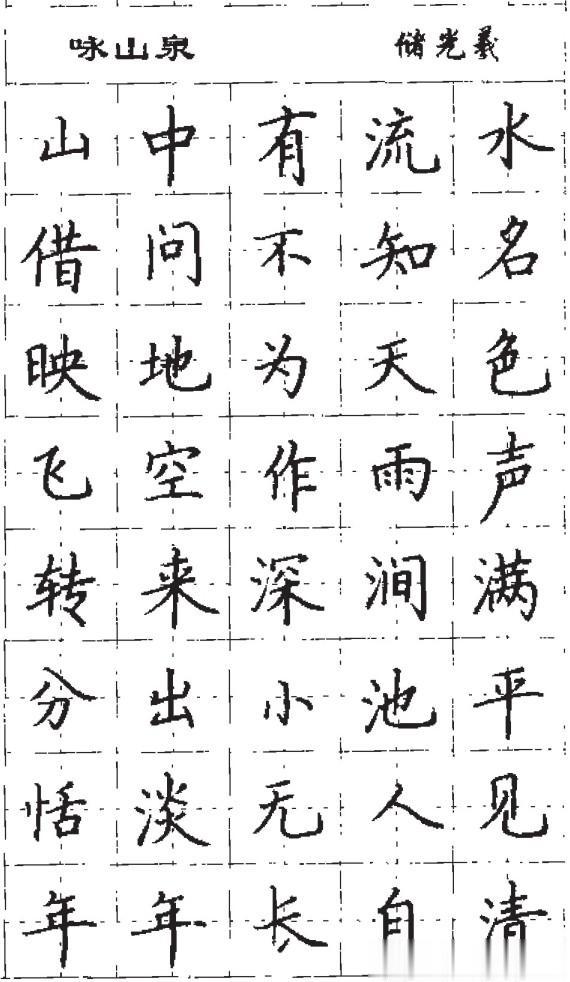 咏山泉 储光羲
山中有流水
借问不知名
映地为天色
飞空作雨声
转来深涧满
分出小池平
恬淡无人见
年年长自清